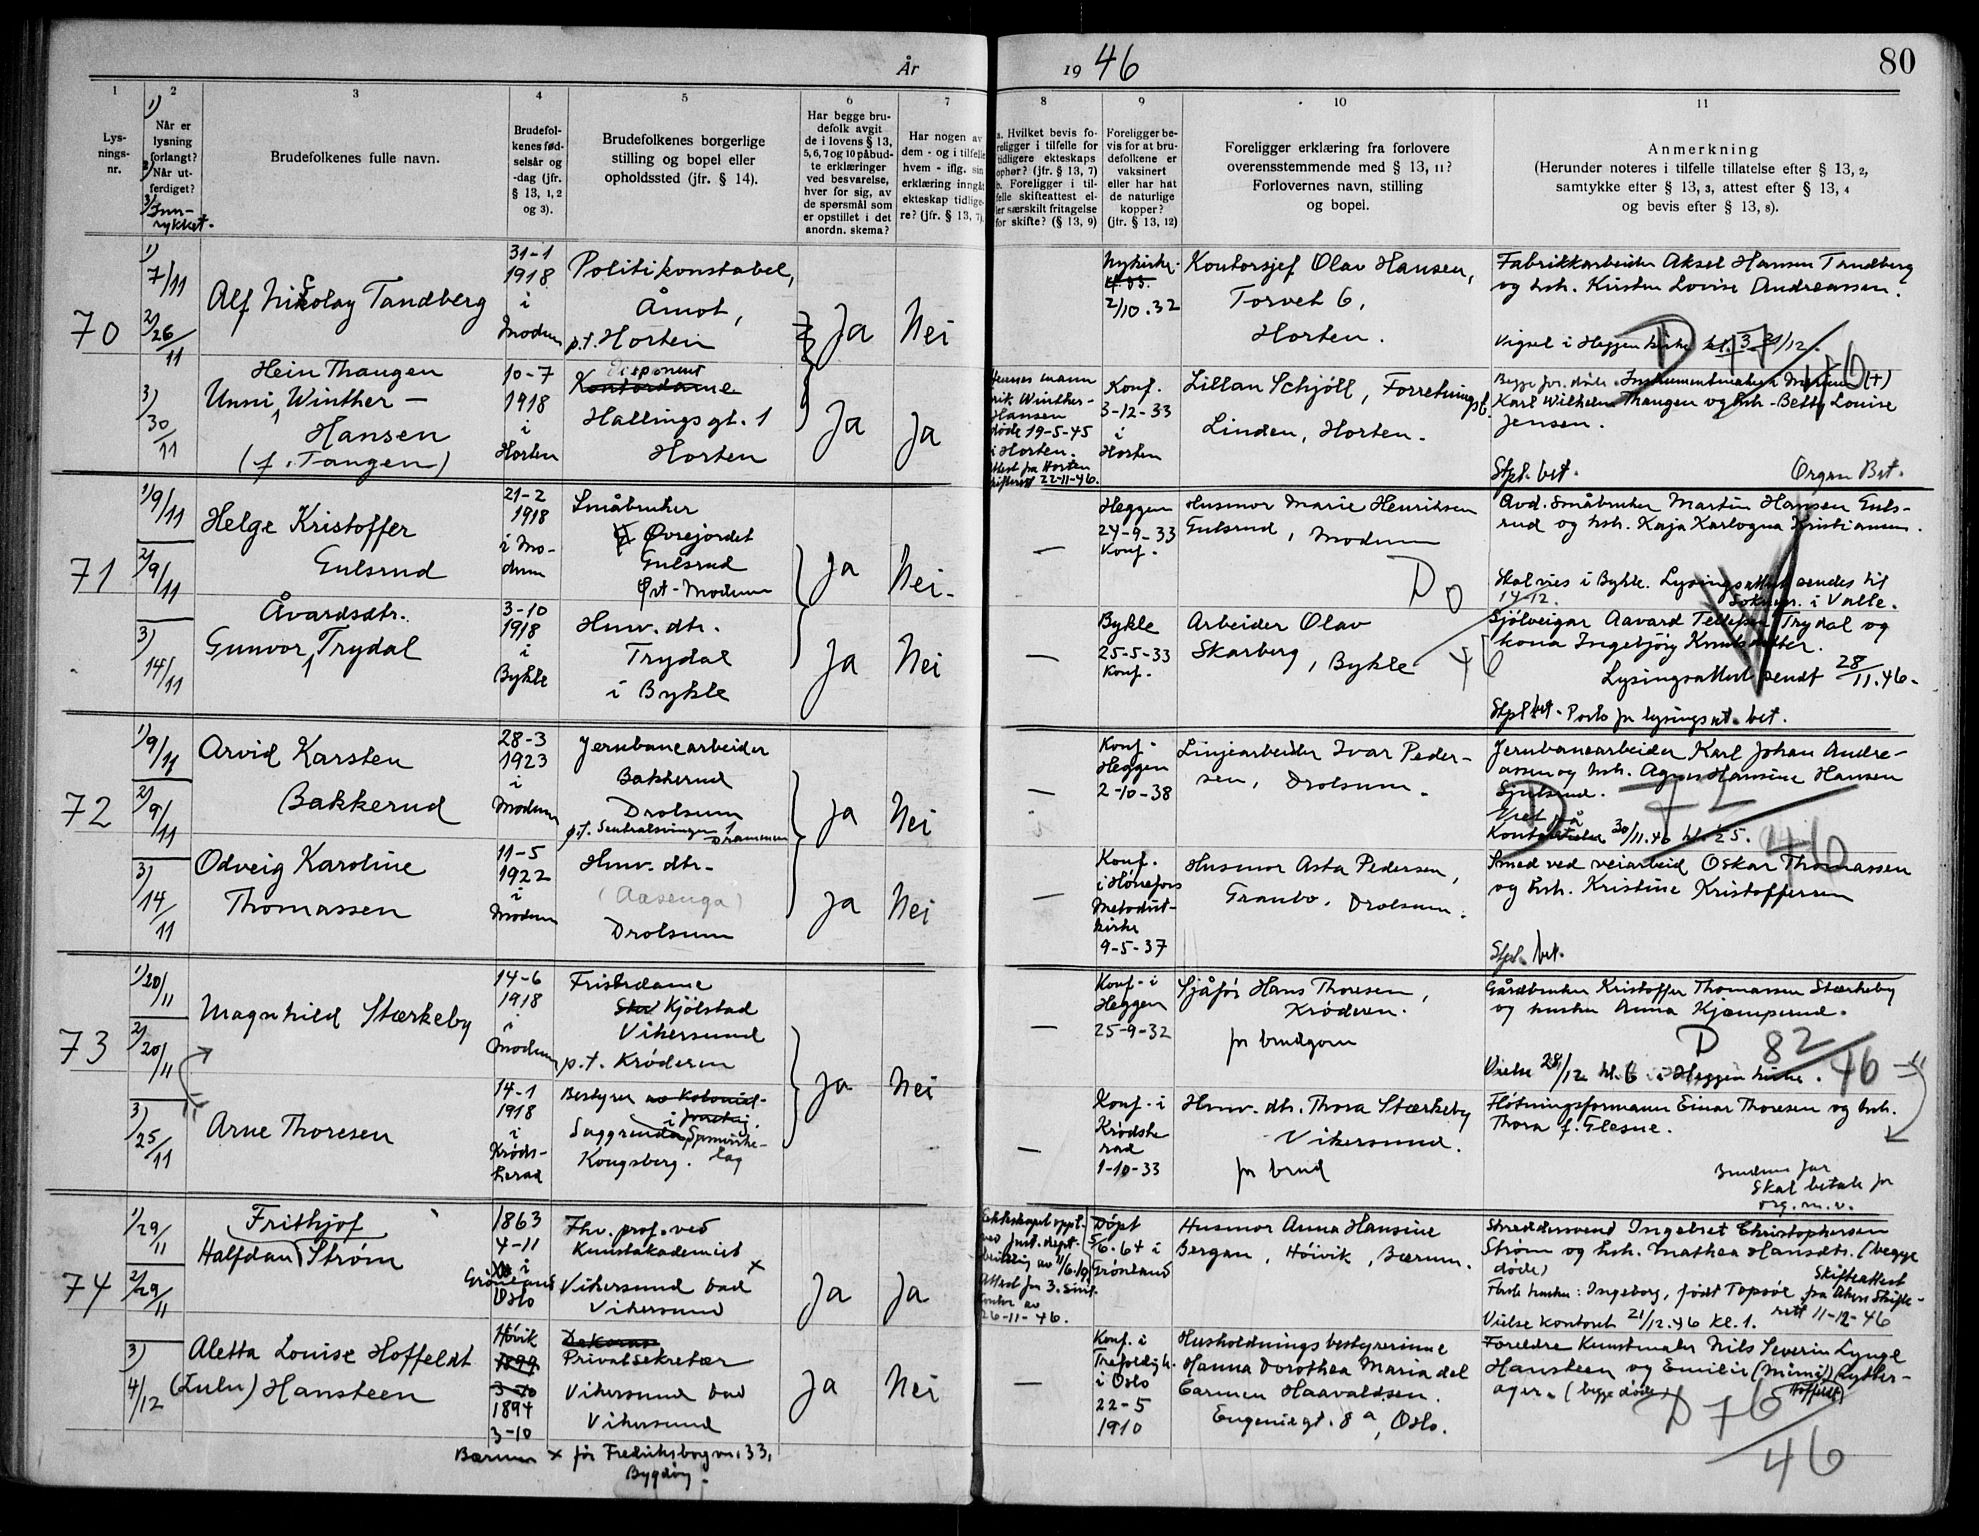 År
19 46
80
1
2
3
4
5
6
7
8
9
10
11
Lys-
nings-
nr.
1)
Når er
lysning
forlangt?
2)
Når ut-
ferdiget?
3) Inn-
rykket.
Brudefolkenes fulle navn.
Brudefol-
kenes fød-
selsår og
-dag (jfr.
§ 13, 1, 2
og 3).
Brudefolkenes borgerlige
stilling og bopel eller
opholdssted (jfr. § 14).
Har begge bru-
defolk avgit
de i lovens § 13,
5, 6, 7 og 10 påbud-
te erklæringer
ved besvarelse,
hver for sig, av
de spørsmål som
er opstillet i det
anordn. skema?
Har nogen av
dem - og i tilfelle
hvem - iflg. sin
erklæring inngåt
ekteskap tidlige-
re? (jfr. § 13, 7).
a. Hvilket bevis fo-
religger i tilfelle for
tidligere ekteskaps
ophør? (jfr. § 13, 7)
b. Foreligger i til-
felle skifteattest el-
ler særskilt fritagelse
for skifte? (§ 13, 9)
Foreligger be-
vis for at bru-
defolkene er
vaksinert
eller har hat
de naturlige
kopper?
(jfr. § 13, 12)
Foreligger erklæring fra forlovere
overensstemmende med § 13, 11?
Forlovernes navn, stilling
og bopel.
Anmerkning
(Herunder noteres i tilfelle tillatelse efter § 13, 2,
samtykke efter § 13, 3, attest efter § 13, 4
og bevis efter § 13, 8).
70
1)
7/11
2)
26/11
3)
30/11
Alf Nikolay Tandberg
31-1
1918
i
Modum
Politikonstabel,
Åmot,
p.t. Horten
Ja
Nei
Nykirke
2/10.32
Kontorsjef Olav Hansen,
Torvet 6,
Horten.
Fabrikkarbeider Aksel Hansen Tandberg
og hsh. Kirsten Lovise Andreassen.
Vigsel i Heggen kirke kl. 3 31/12.
Hein Thaugen
Unni Winther -
Hansen
(f. Tangen)
10-7
1918
i
Horten
Disponent
Kontordame
Hallingsgt. 1
Horten
Ja
Ja
Hennes mann
Winther-
Hansen
døde 19-5-45
i Horten.
Attest fra Horten
skifterett 22-11-46.
Konf.
3-12-33
i
Horten
Lillan Schjöll, Forretningsf.
Linden, Horten.
Begge for. døde. Instrumentmaker (+)
Karl Wilhelm Thaugen og hsh. Betty Louise
Jensen.
Stpl. bet. Organ Bet.
71
1) 9/11
2) 9/11
3)
14/11
Helge Kristoffer
Gulsrud
21-2
1918
i Mo-
dum
Småbruker
Øvrejordet
Gulsrud
Øst-Modum
Ja
Nei.
—
Heggen
24-9-33
Konf.
Husmor Marie Henriksen
Gulsrud, Modum
D
Avd. Småbruker Martin Hansen Guls-
rud og hsh. Kaja Karlogna Kristiansen.
Skal vies i Bykle. Lysingsattest sendes til
14-12. Soknepr. i Valle.
Åvardsdtr.
Gunvor Trydal
3-10
1918
i
Bykle
Hmv. dtr.
Trydal
i Bykle
Ja
Nei
—
Bykle
25-5-33
Konf.
Arbeider Olav
Skarberg, Bykle
46
Sjölveigar Aavard Tellefsen Trydal og
kona Ingebjörg Knutsdatter.
Lysingsattest sendt 28/11.46.
Stpl bet. Porto for lysingsat. bet.
72
1) 9/11
2) 9/11
3)
14/11
Arvid Karsten
Bakkerud
28-3
1923
i
Modum
Jernbanearbeider
Bakkerud
Drolsum
p.t. Sentralsvingen 1
Drammen
Ja
Nei
—
Konf.
Heggen
2-10-38
Linjearbeider Ivar Peder-
sen, Drolsum.
Jernbanearbeider Karl Johan Andre-
assen og hsh. Agnes Hansine Hansen
Viet på
Kontoret 30/11.46 kl. 15.
D 72/46
Odveig Karoline
Thomassen
11-5
1922
i
Modum
Hmv. dtr.
(Aasenga)
Drolsum
Ja
Nei
—
Konf.
i Hönefoss
Metodist-
kirke
9-5-37
Husmor Asta Pedersen,
Granbo, Drolsum.
Smed ved veiarbeid Oskar Thomassen
og hsh. Kristine Kristoffersen
Stpl. bet.
73
1) 20/11
2) 20/11
3)
25/11
Magnhild Stærkeby
14-6
1918
i
Modum
Frisørdame
Kjölstad
Vikersund
p.t. Krøderen
Ja
Nei
—
Konf. i
Heggen
25-9-32
Sjåför Hans Thoresen,
Krøderen.
for brudgom
Gårdbruker Kristoffer Thomassen Stærkeby
og hustru Anna Kjemperud.
D 82/46
Vielse 28/12 kl. 6 i Heggen kirke.
Arne Thoresen
14-1
1918
i
Krøds-
herad
Bestyrer av Kolonial-
i
Saggrenda Samvirke-
lag
Kongsberg.
—
Konf. i
Krødshe
rad
1-10-33
Hmv. dtr. Thora Stærkeby
Vikersund.
for brud
Fløtningsformann Einar Thoresen og hsh.
Thora f. Glesne.
Brudens far
skal betale for
org. m.v.
74
1) 29/11
2) 29/11
3)
4/12
Frithjof
Halfdan Strøm
1863
4-11
i
Grönland
Oslo
Fhv. prof. ved
Kunstakademiet
Vikersund bad x
Vikersund
Ja
Ja
Ekteskapet oppl.
ved Just. dept.
Attest fra 3.
26-11-46.
Döpt
5/6.64 i
Grönland
Husmor Anna Hansine
Bergan, Höivik, Bærum.
Skreddersvend Ingebret Christophersen
Strøm og hsh. Mathea Hansdtr. (begge
døde)
Skifteattest
Første hustru: Ingeborg, født Topsöe fra Akers Skifte-
rett 11-12-46
Vielse kontoret 21/12.46 kl. 1.
Aletta Louise Hoffeldt
(Lulu) Hansteen
Höivik
1899
3-10
1894
3-10
Bærum
Privatsekretær
Vikersund bad
Vikersund
Ja
Nei
—
Konf. i
Trefoldigh.
i Oslo
22-5
1910
Husholdningsbestyrerinne
Hanna Dorothea Maria del
Carmen Haavaldsen.
Eugeniegt. 8a, Oslo.
Foreldre Kunstmaler Nils Severin Lynge
Hansteen og Emilie (Mimi) Lytter-
ager. (begge døde) Hoffeldt)
D 76/46
x før Fredriksborgvn. 33,
Bygdöy.